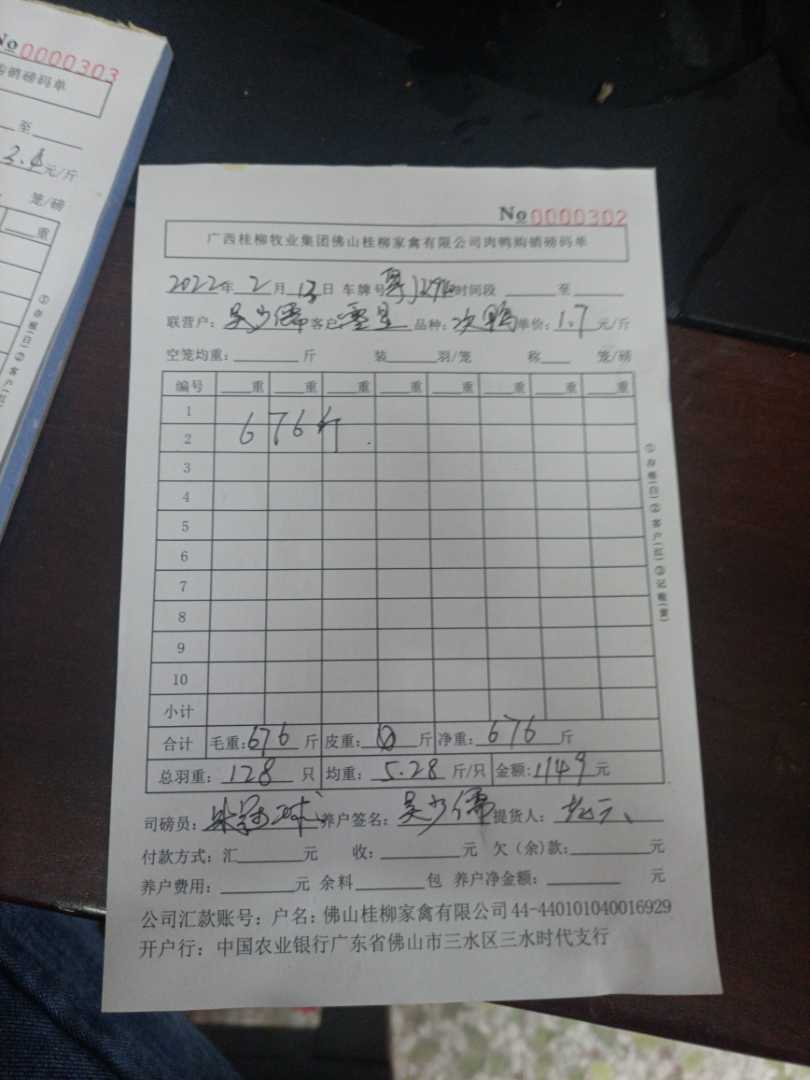 No 0000303
购销磅码单
至
2.4元/斤
笼/磅
重
①存根(白)②客户(红)
No 0000302
广西桂柳牧业集团佛山桂柳家禽有限公司肉鸭购销磅码单
2022年 2月 13日 车牌号 时间段 至
联营户：吴少儒 客户 品种：次鸭 单价：1.7元/斤
空笼均重： 斤 装 羽/笼 称 笼/磅
编号 重 重 重 重 重 重 重 重
1
2 676斤
3
4
5
6
7
8
9
10
小计
合计 毛重：676斤 皮重：0斤 净重：676斤
总羽重：128只 均重：5.28斤/只 金额：1149元
司磅员： 养户签名：吴少儒 提货人：
付款方式：汇 元 收： 元 欠(余)款： 元
养户费用： 元 余料 包 养户净金额： 元
公司汇款账号：户名：佛山桂柳家禽有限公司 44-440101040016929
开户行：中国农业银行广东省佛山市三水区三水时代支行
①存根(白)②客户(红)③记账(黄)